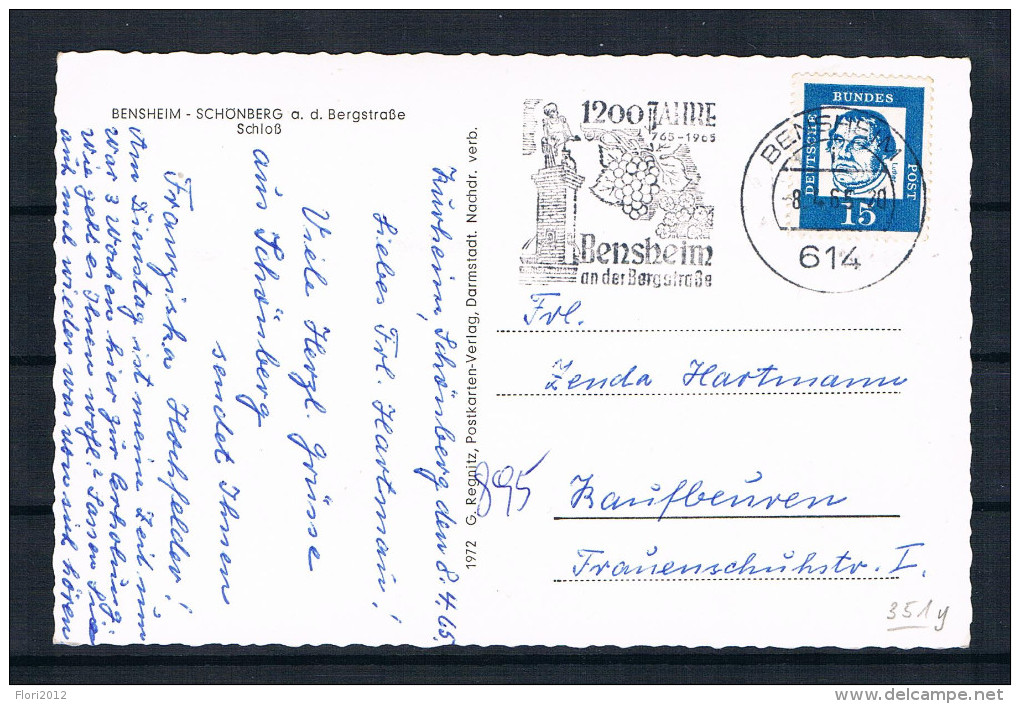 BENSHEIM - SCHÖNBERG a. d. Bergstraße
Schloß
1200 JAHRE
765-1965
Bensheim
an der Bergstraße
BENSHEIM
-8.4.65-20
614
DEUTSCHE
BUNDES
POST
15
Frl.
Zenda Hartmann
Kaufbeuren
Frauenschuhstr. I.
895
351y
1972 G. Regnitz, Postkarten-Verlag, Darmstadt. Nachdr. verb.
Kurheim, Schönberg den 8.4.65.
Liebes Frl. Hartmann!
Viele Herzl. Grüsse
aus Schönberg
sendet Ihnen
Franziska Hochfelder!
Am Dienstag ist meine Zeit um
War 3 Wochen hier zur Erholung.
Wie geht es Ihnen wohl? Lassen Sie
auch mal wieder was von sich hören
Flori2012
www.delcampe.net